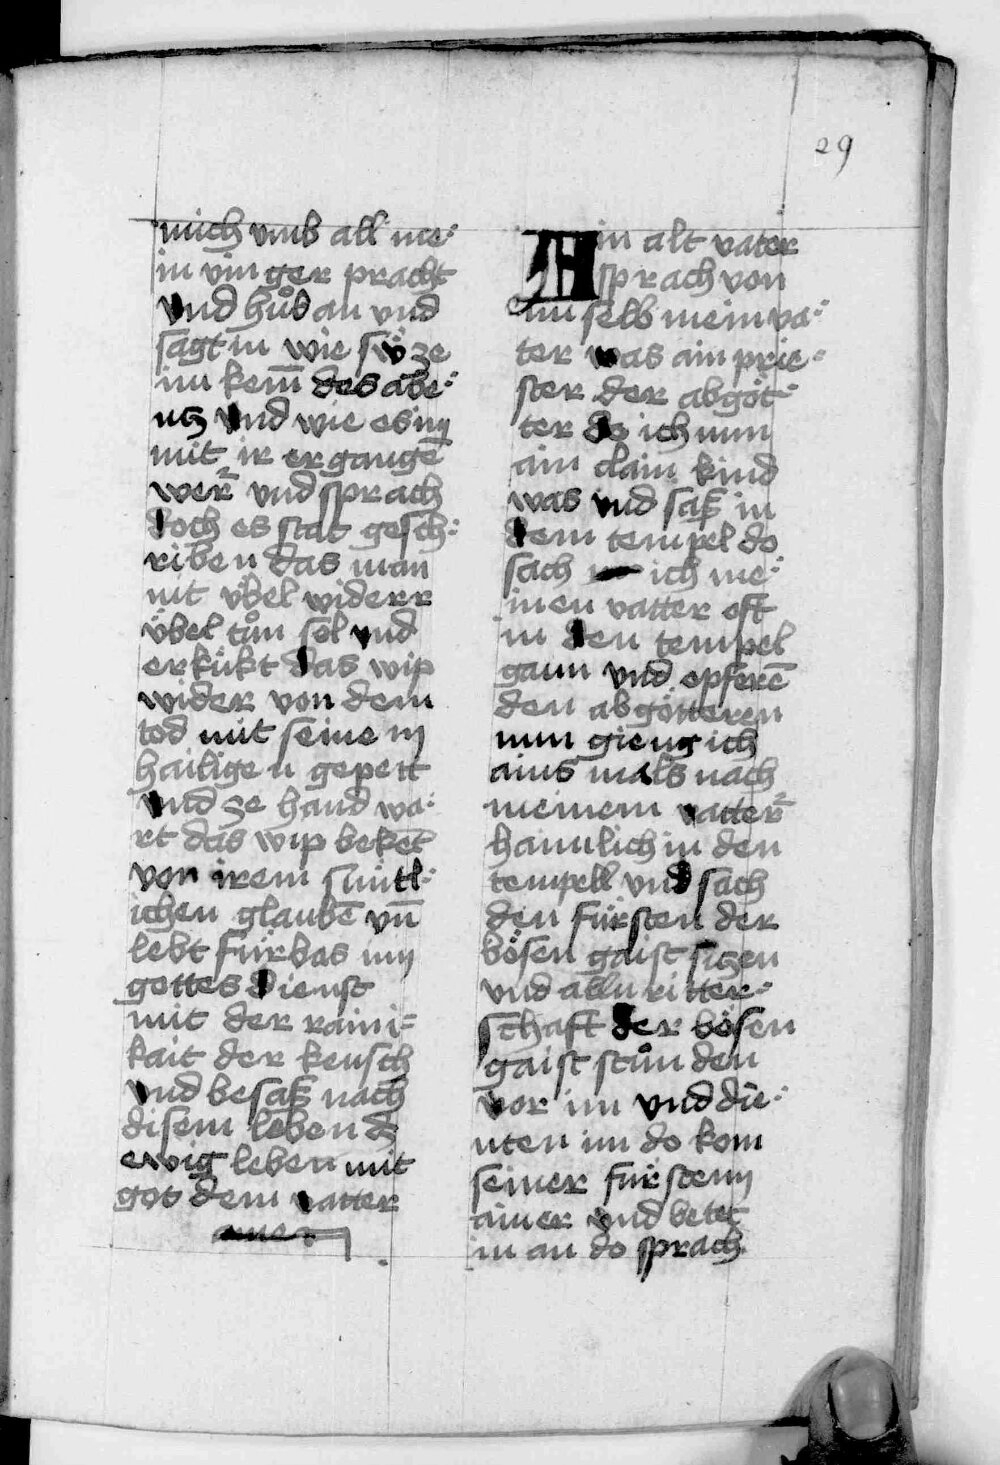 29
mich vmb all me⸗
in vinger pracht
vnd hůb an vnd
sagt in wie sÿ ze
im kem̄ des abe⸗
ntz vnd wie es im
mit ir ergangē
wer vnd sprach
doch es stat gesch⸗
riben das man
nit v̈bel widerr
v̈bel tůn sol vnd
erkükt das wip
wider von dem
tod mit seinem
hailigen gepett
vnd ze hand wa⸗
rt das wip bekēt
von irem süntl⸗
ichen glaubē vn̄
lebt fürbas im
gottes dienst
mit der raini⸗
kait der keusch
vnd besaß nach
disem leben dz
ewig leben mit
got dem vatter
amen
Ain alt vater
sprach von
im selb mein va⸗
ter was ain prie⸗
ster der abgöt⸗
ter do ich nun
ain clain kind
was vnd saß in
dem tempel do
sach ich me⸗
inen vatter oft
in den tempel
gann vnd opferē
den abgötteren
nun gieng ich
ains mals nach
meinem vatter
haimlich in den
tempell vnd sach
den fürsten der
bösen gaist sitzen
vnd allu ritter⸗
schaft der bösen
gaist stůnden
vor im vnd die⸗
nten im do kom
seiner fürstenn
ainer vnd betet
in an do sprach